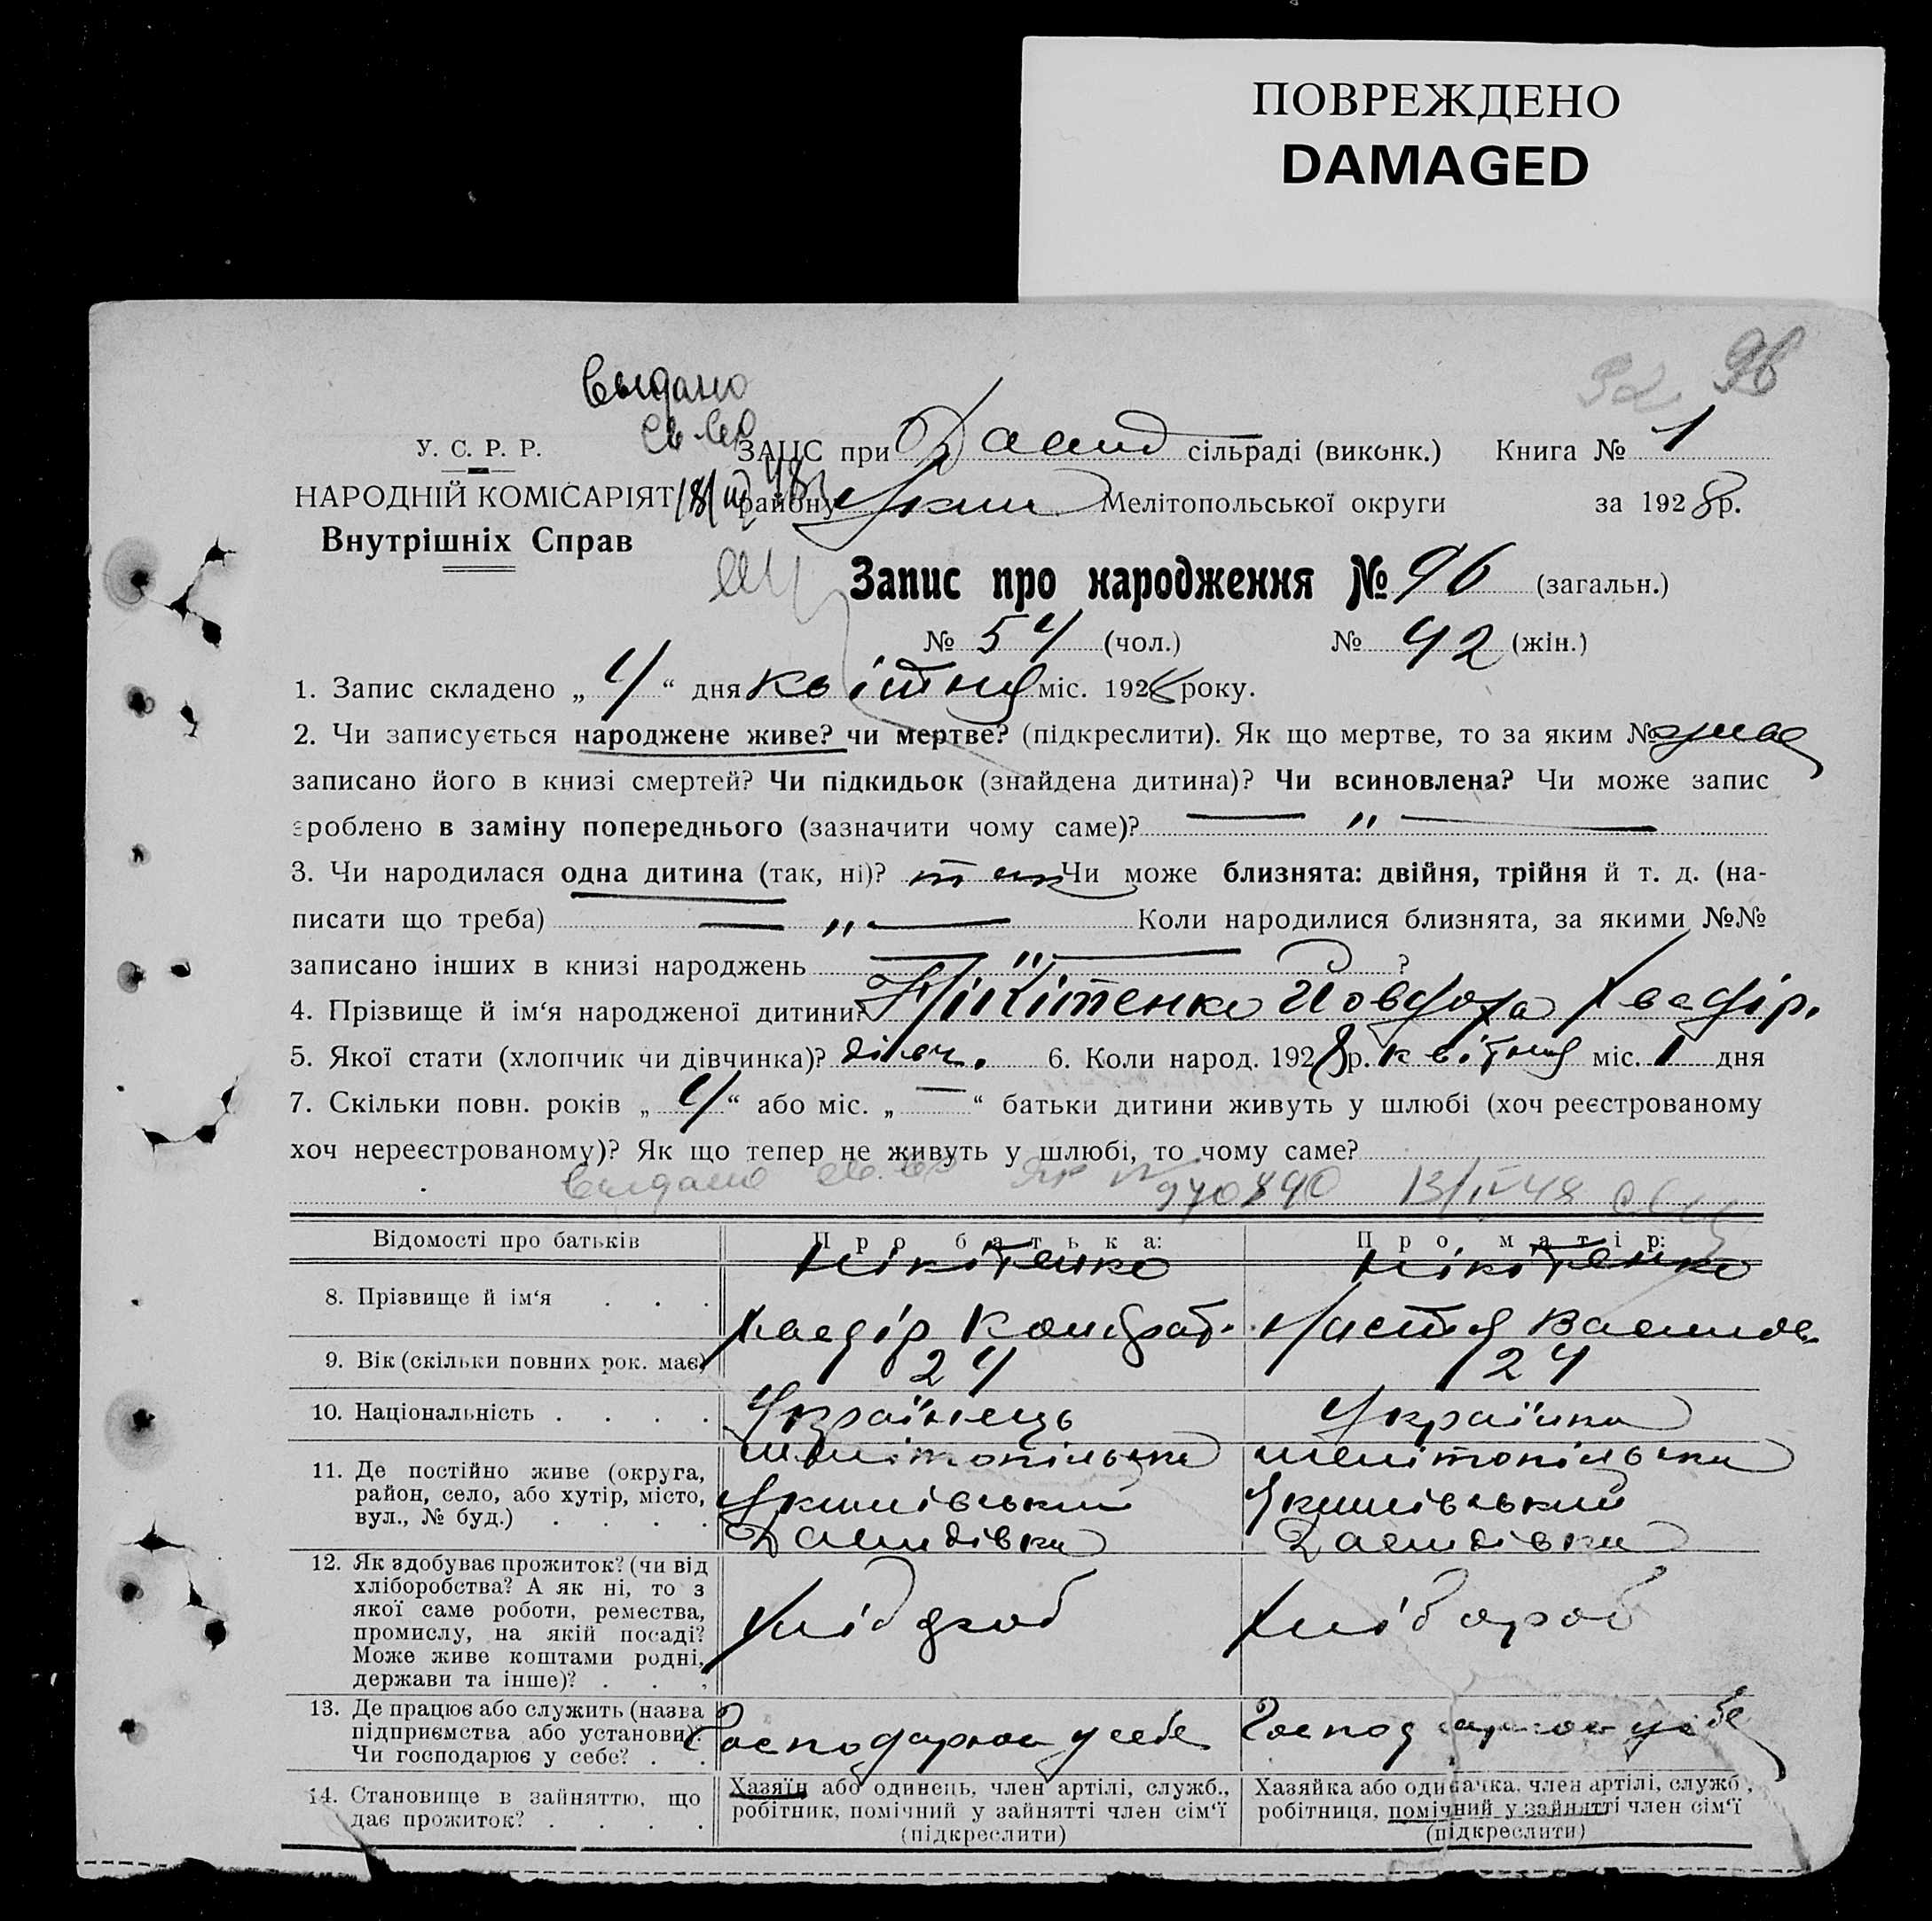 ПОВРЕЖДЕНО
DAMAGED
96
Выдано
св-во
У. С. Р. Р.
ЗАЦС при Давид сільраді (виконк.) Книга № 1
НАРОДНІЙ КОМІСАРІЯТ
району Яким Мелітопольської округи за 1928 р.
Внутрішніх Справ
Запис про народження № 96 (загальн.)
№ 54 (чол.) № 42 (жін.)
1. Запис складено „ 4 “ дня квітня міс. 1928 року.
2. Чи записується народжене живе? чи мертве? (підкреслити). Як що мертве, то за яким № живе
записано його в книзі смертей? Чи підкидьок (знайдена дитина)? Чи всиновлена? Чи може запис
зроблено в заміну попереднього (зазначити чому саме)? — „ —
3. Чи народилася одна дитина (так, ні)? так Чи може близнята: двійня, трійня й т. д. (на-
писати що треба) — „ — Коли народилися близнята, за якими №№
записано інших в книзі народжень — „ — ?
4. Прізвище й ім‘я народженої дитини? Нікітенко Йовдоха Хведір.
5. Якої стати (хлопчик чи дівчинка)? дівч. 6. Коли народ. 1928 р. квітня міс. 1 дня
7. Скільки повн. років „ 4 “ або міс. „ — “ батьки дитини живуть у шлюбі (хоч реєстрованому
хоч нереєстрованому)? Як що тепер не живуть у шлюбі, то чому саме?
Выдано св. во № 970890 13/IV 48
Відомості про батьків Про батька: Про матір:
8. Прізвище й ім‘я . . . Нікітенко Хведір Кондрат. Нікітенко Настя Васильов
9. Вік (скільки повних рок. має) 24 24
10. Національність . . . . Українець Українка
11. Де постійно живе (округа, район, село, або хутір, місто, вул., № буд.) . . . . Мелітопільська Якимівський Давидівка Мелітопільська Якимівський Давидівка
12. Як здобуває прожиток? (чи від хліборобства? А як ні, то з якої саме роботи, ремества, промислу, на якій посаді? Може живе коштами родні, держави та інше)? . . . хлібороб хлібороб
13. Де працює або служить (назва підприємства або установи)? Чи господарює у себе? . . Господарює у себе Господарює у себе
14. Становище в зайняттю, що дає прожиток? . . . . Хазяїн або одинець, член артілі, служб., робітник, помічний у зайнятті член сім‘ї (підкреслити) Хазяйка або одиначка, член артілі, служб., робітниця, помічний у зайнятті член сім‘ї (підкреслити)